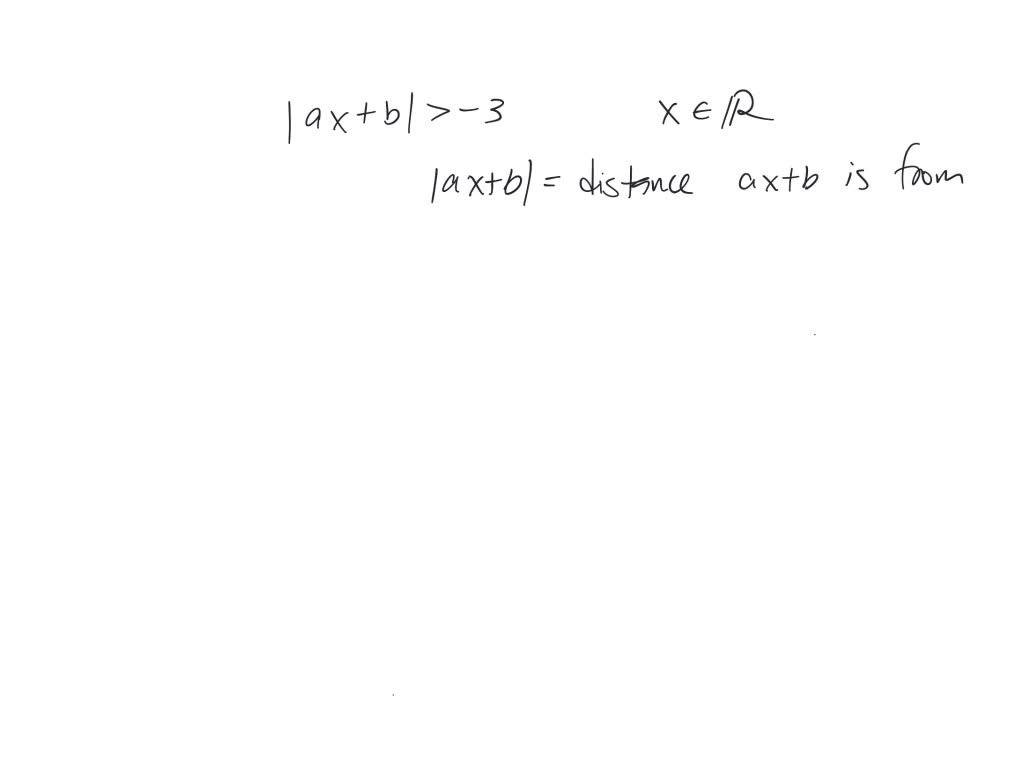 |ax+b| > -3 x ∈ ℝ
|ax+b| = distance ax+b is from